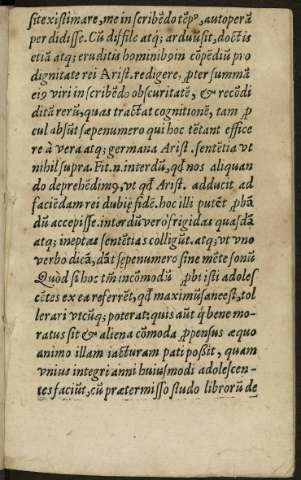 sitexistimare, me in scribēdo tēpꝰ, autoperā
perdidisse. Cū difficile atq; arduū sit, doctis
etiā atq; eruditis hominibꝰ in cōpēdiū pro
dignitate rei Arist. redigere, ꝓpter summā
eiꝰ viri in scribēdo obscuritatē, & recōdi
ditā rerū, quas tractat cognitionē, tam ꝓ
cul absūt sæpenumero qui hoc tētant effice
re à vera atq; germana Arist. sentētia vt
nihil supra. Fit.n.interdū, qđ nos aliquan
do deprehēdimꝰ, vt qđ Arist. adducit ad
faciēdam rei dubię fidē. hoc illi putēt ꝓbā
dū accepisse. interdū vero frigidas quasdā
atq; ineptas sentētias colligūt. atq; vt vno
verbo dicā, dāt sępenumero sine mēte sonū
Quòd si hoc tm̄ incōmodū ꝓbi isti adoles
cētes ex ea referrēt, qđ maximū sane est, tol
lerari vtcūq; poterat: quis aūt q̄ bene mo-
ratus sit & aliena cōmoda ꝓpensus æquo
animo illam iacturam pati possit, quam
vnius integri anni huiusmodi adolescen-
tes faciūt, cū prætermisso studo librorū de